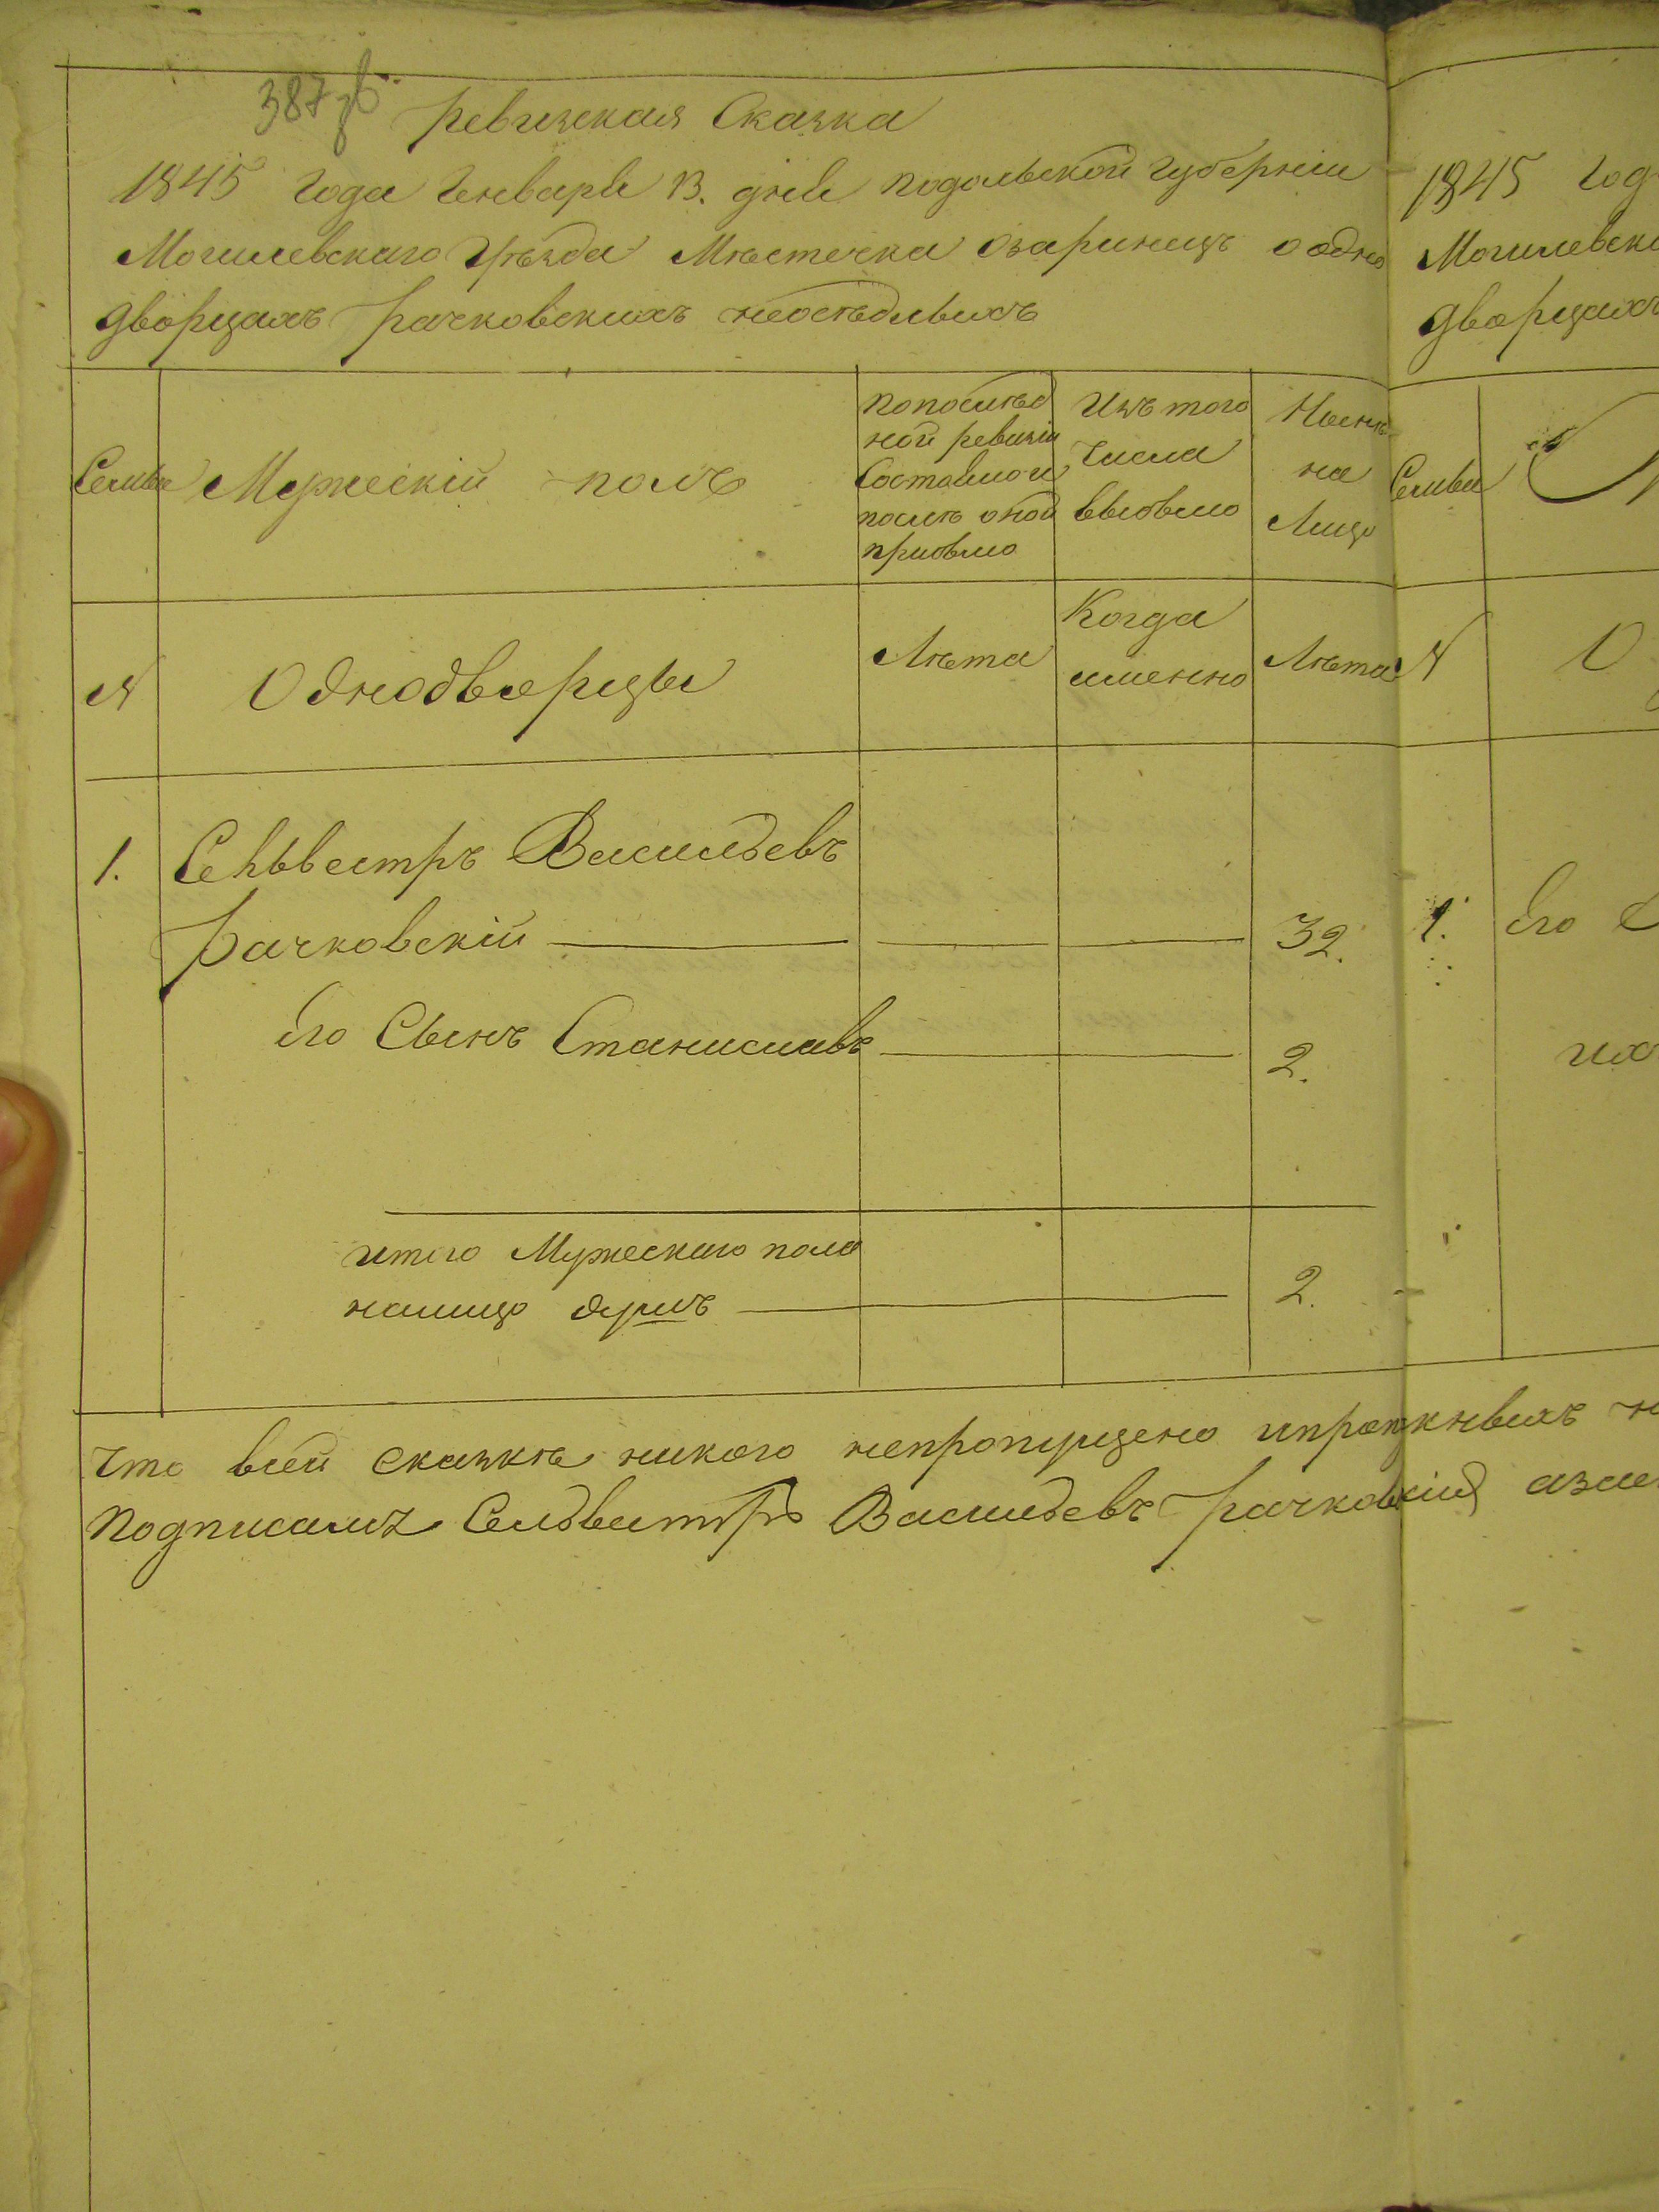 387
Ревизская Сказка
1845 Года Генваря 13. дня Подольской Губерніи
Могилевскаго Уѣзда Мѣстечка Озаринецъ о одно
дворцахъ Рачковскихъ неосѣдлыхъ
Семья
Мужескій полъ
По послѣд
ной ревизіи
Состояло и
послѣ оной
прибыло
Изъ того
числа
выбыло
Нынѣ
на
Лицо
№
Однодворцы
Лѣта
Когда
именно
Лѣта
1. Сельвестръ Васильевъ
Рачковскій 32.
Его Сынъ Станиславъ 2.
итого Мужескаго пола
налицо душъ 2.
Что всей сказкѣ никого непропущено
Подписалъ Сельвестръ Васильевъ Рачковскій
1845 Год
Могилевск
дворцахъ
Семья
№
О
1. Его С
их